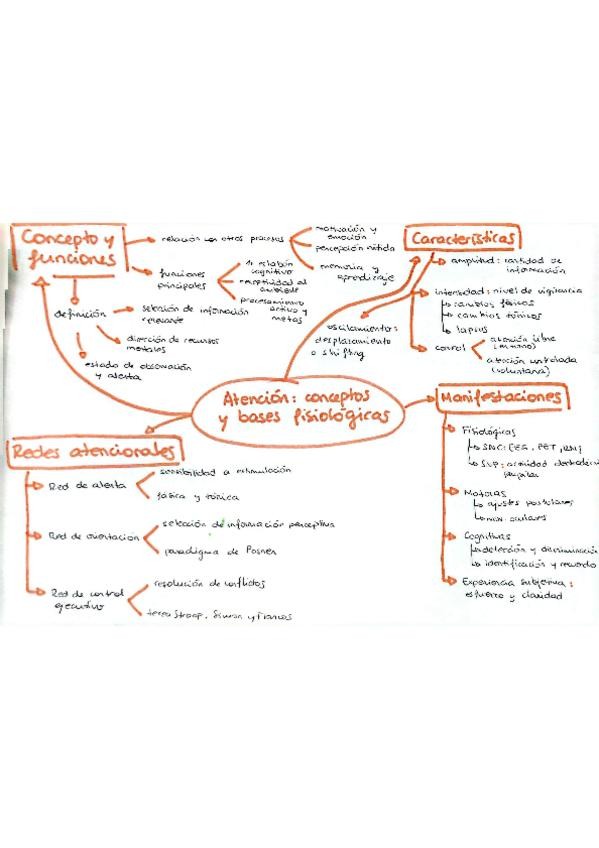 Concepto y
funciones
relación con otros procesos
motivación y
emoción
percepción nítida
memoria y
aprendizaje
funciones
principales
1º eslabón
cognitivo
receptividad al
ambiente
procesamiento
activo y
metas
definición
selección de información
relevante
dirección de recursos
mentales
estado de observación
y alerta
Características
amplitud: cantidad de
información
intensidad: nivel de vigilancia
cambios fásicos
cambios tónicos
lapsus
oscilamiento:
desplazamiento
o shifting
control
atención libre
atención controlada
(voluntaria)
Atención: conceptos
y bases fisiológicas
Manifestaciones
Fisiológicas
SNC: EEG, PET, RMf
SNP: actividad electrodérmi
pupilar
Motoras
ajustes posturales
mov. oculares
Cognitivas
detección y discriminación
identificación y recuerdo
Experiencia subjetiva:
esfuerzo y claridad
Redes atencionales
Red de alerta
sensibilidad a estimulación
fásica y tónica
Red de orientación
selección de información perceptiva
paradigma de Posner
Red de control
ejecutivo
resolución de conflictos
tarea Stroop, Simon y Flancos